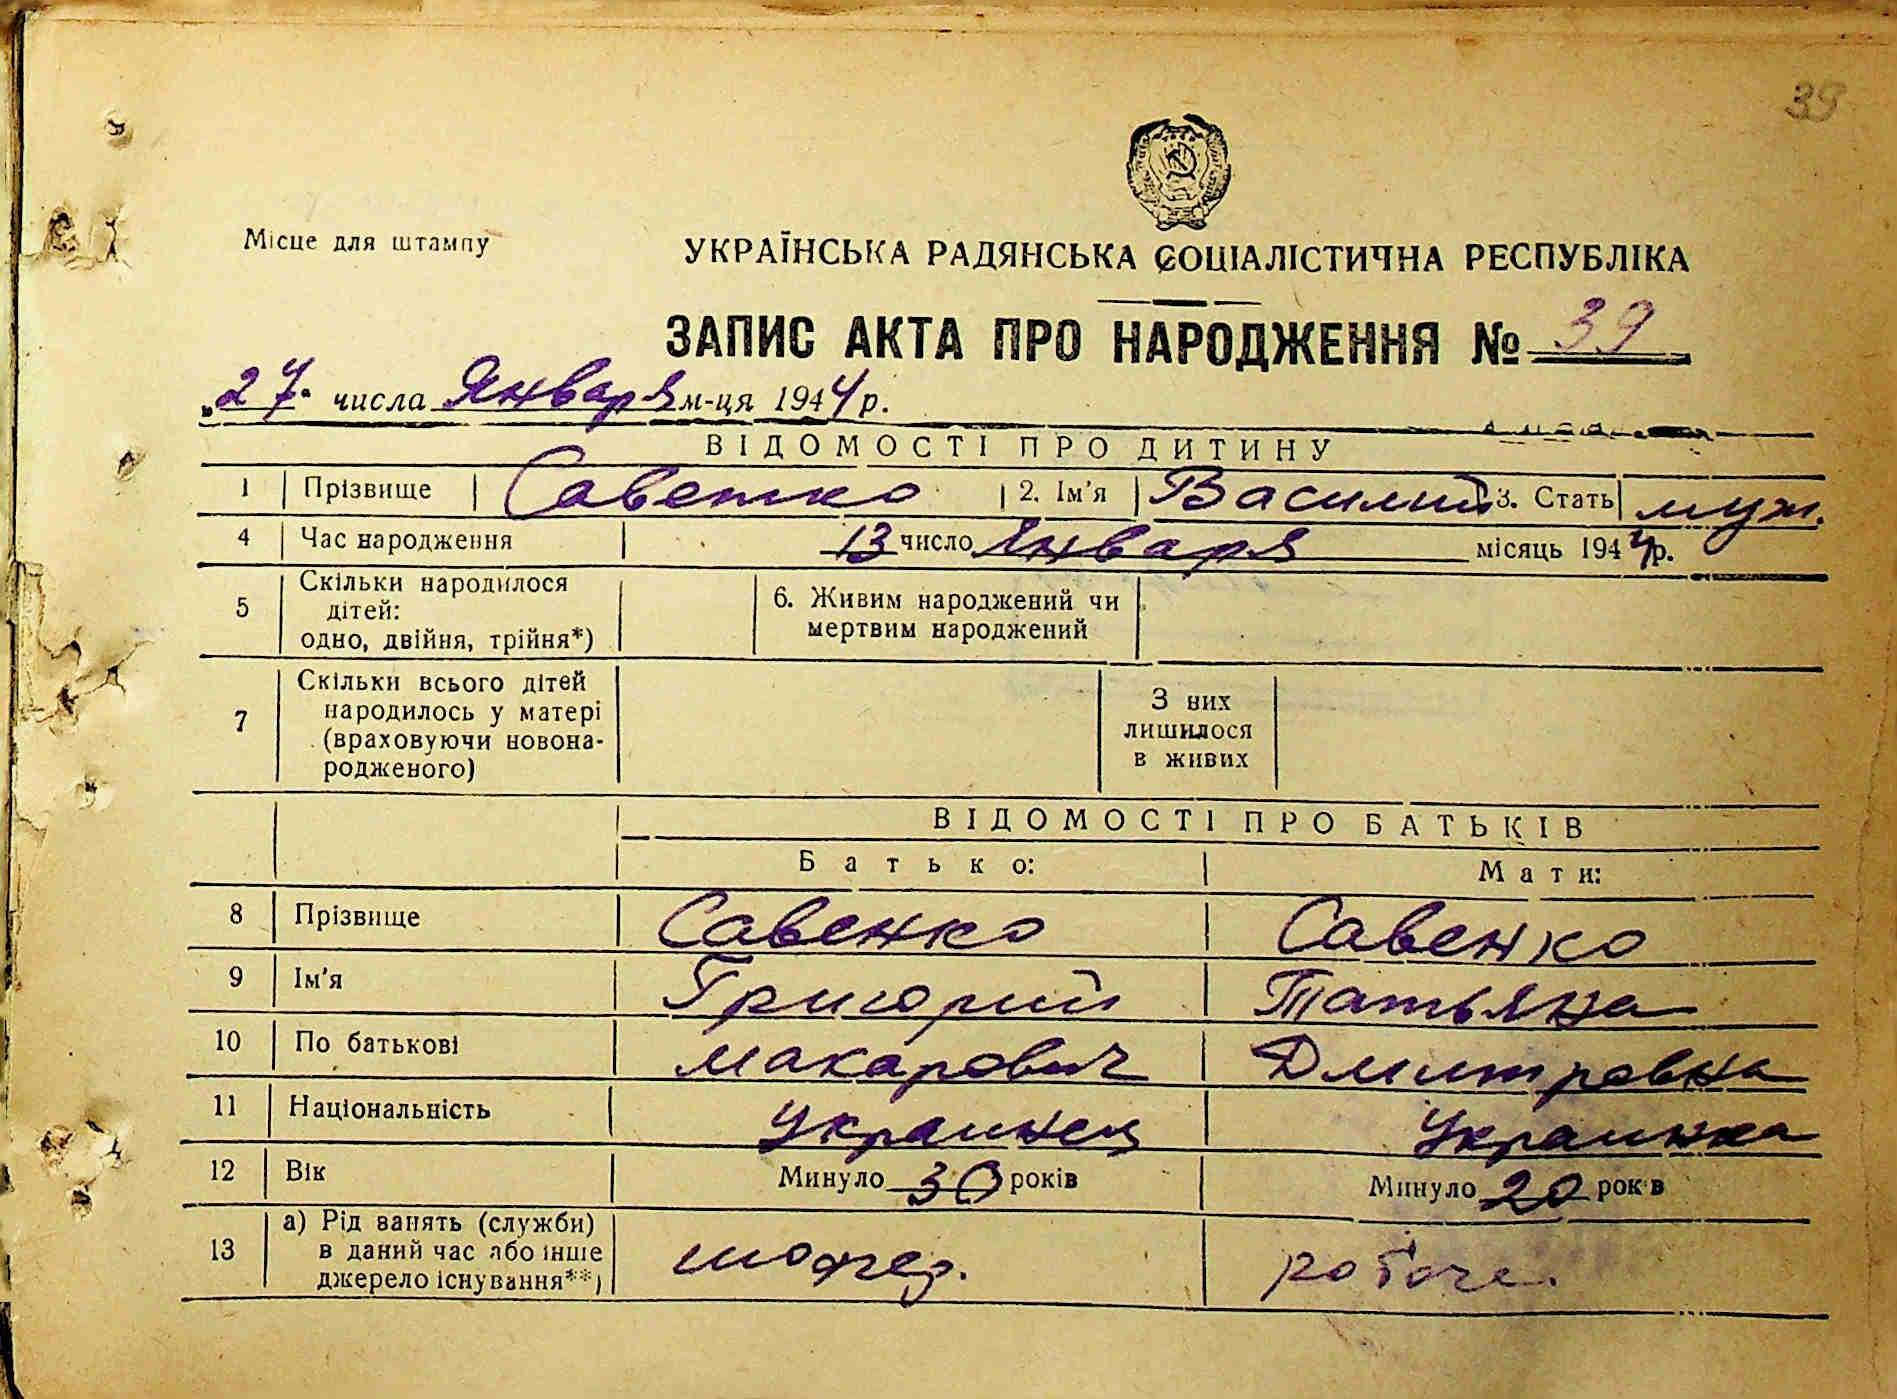 39
Місце для штампу
УКРАЇНСЬКА РАДЯНСЬКА СОЦІАЛІСТИЧНА РЕСПУБЛІКА
ЗАПИС АКТА ПРО НАРОДЖЕННЯ № 39
„27" числа Января м-ця 1944 р.
ВІДОМОСТІ ПРО ДИТИНУ
1 Прізвище Савенко 2. Ім'я Василий 3. Стать муж.
4 Час народження 13 число Января місяць 1944 р.
5 Скільки народилося дітей: одно, двійня, трійня*) 6. Живим народжений чи мертвим народжений
7 Скільки всього дітей народилось у матері (враховуючи новонародженого) З них лишилося в живих
ВІДОМОСТІ ПРО БАТЬКІВ
Батько: Мати:
8 Прізвище Савенко Савенко
9 Ім'я Григорий Татьяна
10 По батькові Макарович Дмитровна
11 Національність Украинец Украинка
12 Вік Минуло 30 років Минуло 20 років
13 а) Рід занять (служби) в даний час або інше джерело існування**) шофер.